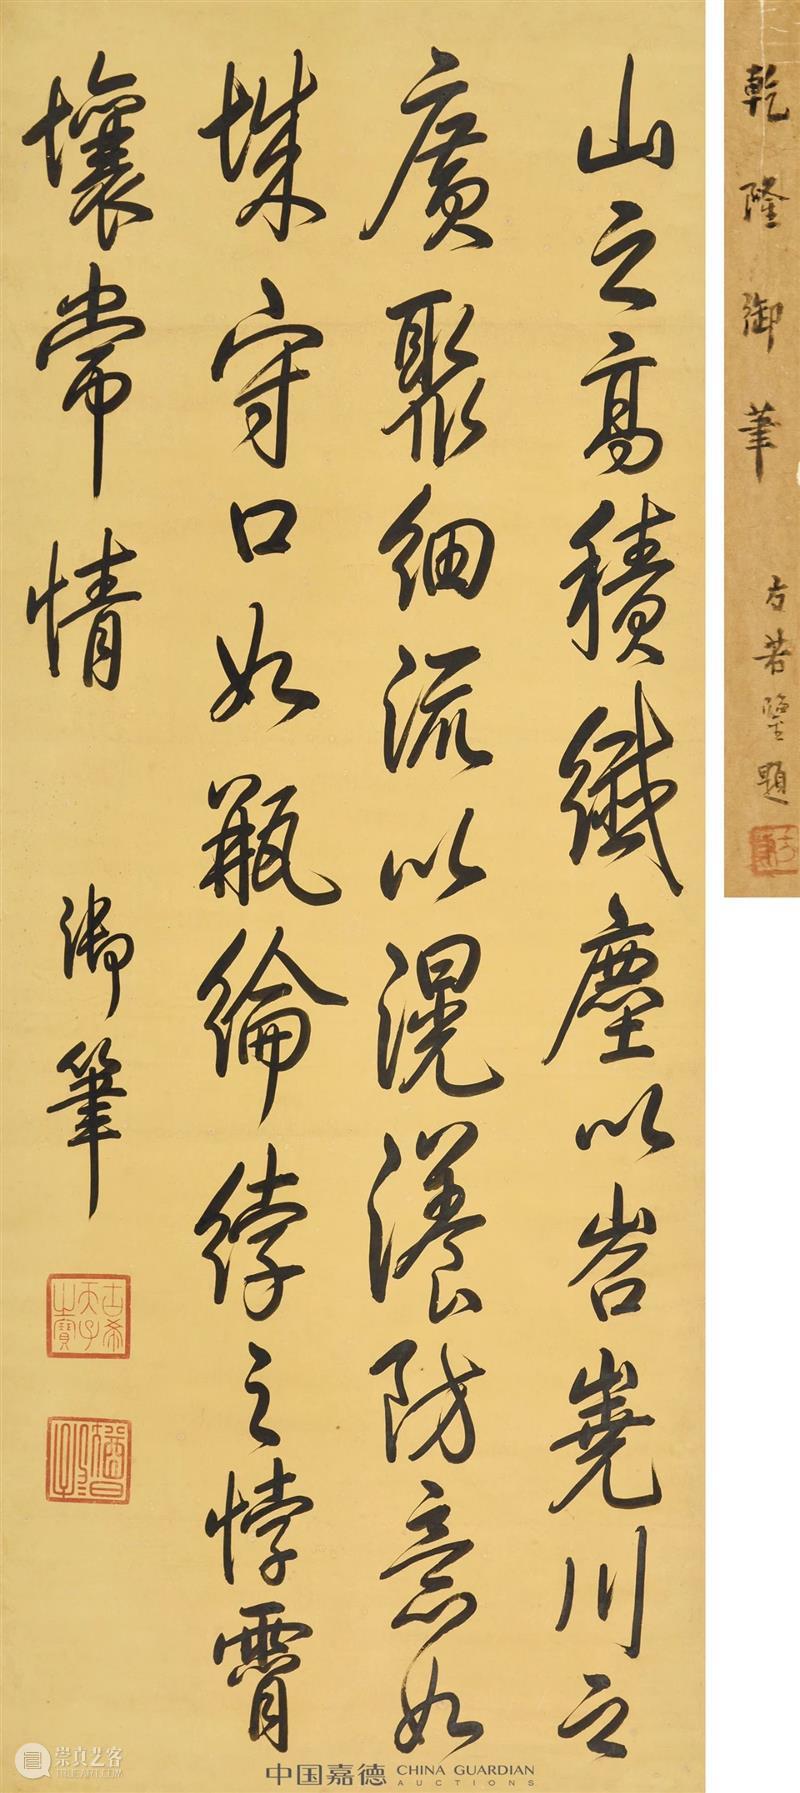 乾隆御筆
方若鑒題
山之高積纖塵以岧嶤川之
廣聚細流以滉瀁防意如
城守口如瓶綸綍之悖霄
壤常情
御筆
古希天子之寶
猶日孜孜
崇真艺客
WWW.TRUEART.COM
中国嘉德 CHINA GUARDIAN
AUCTIONS